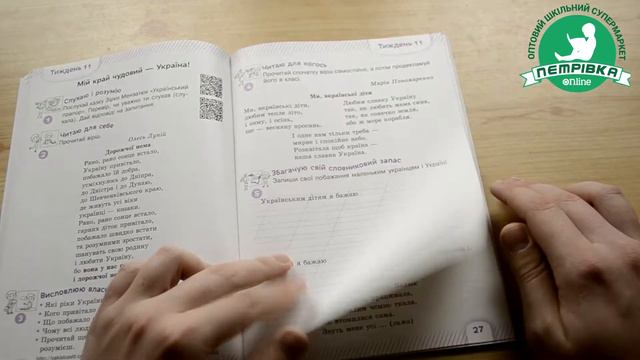 Тиждень 11
Мій край чудовий — Україна!
Слухаю і розумію
Послухай казку Зірки Мензатюк «Український
прапор». Перевір, чи уважно ти слухав (слу-
хала). Дай відповіді на запитання
1
Читаю для себе
Прочитай вірш.
2
Олесь Лупій
Дорожчої нема
Рано, рано сонце встало,
Україну привітало,
побажало їй добра,
усміхнулось до Дніпра,
до Дністра і до Дунаю,
до Шевченківського краю,
де живуть усі віки
українці — козаки.
Рано, рано сонце встало,
гарних діток привітало,
побажало швидко встати
та розумними зростати,
шанувать свою родину
і любити Україну,
бо вона у нас
і дорожчої
Висловлюю
3
• Які ріки
• Кого привітало
• Що побажало
• Чому всі
• Прочитай
розумієш.
Тиждень 11
Читаю для когось
Прочитай спочатку вірш самостійно, а потім продекламуй
його в класі.
4
Марія Пономаренко
Ми, українські діти
Ми, українські діти,
любим тепле літо,
і зиму, і осінь,
ще — весняну просинь.
Любим славну Україну
так, як любить мама сина,
так, як сонечко земля,
або ж море корабля.
І одне нам тільки треба —
мирне і спокійне небо.
Розквітала щоб країна —
наша славна Україна.
Збагачую свій словниковий запас
Запиши свої побажання маленьким українцям і Україні
5
Українським дітям я бажаю
я бажаю
27
ОПТОВИЙ ШКІЛЬНИЙ СУПЕРМАРКЕТ
ПЕТРІВКА
Online